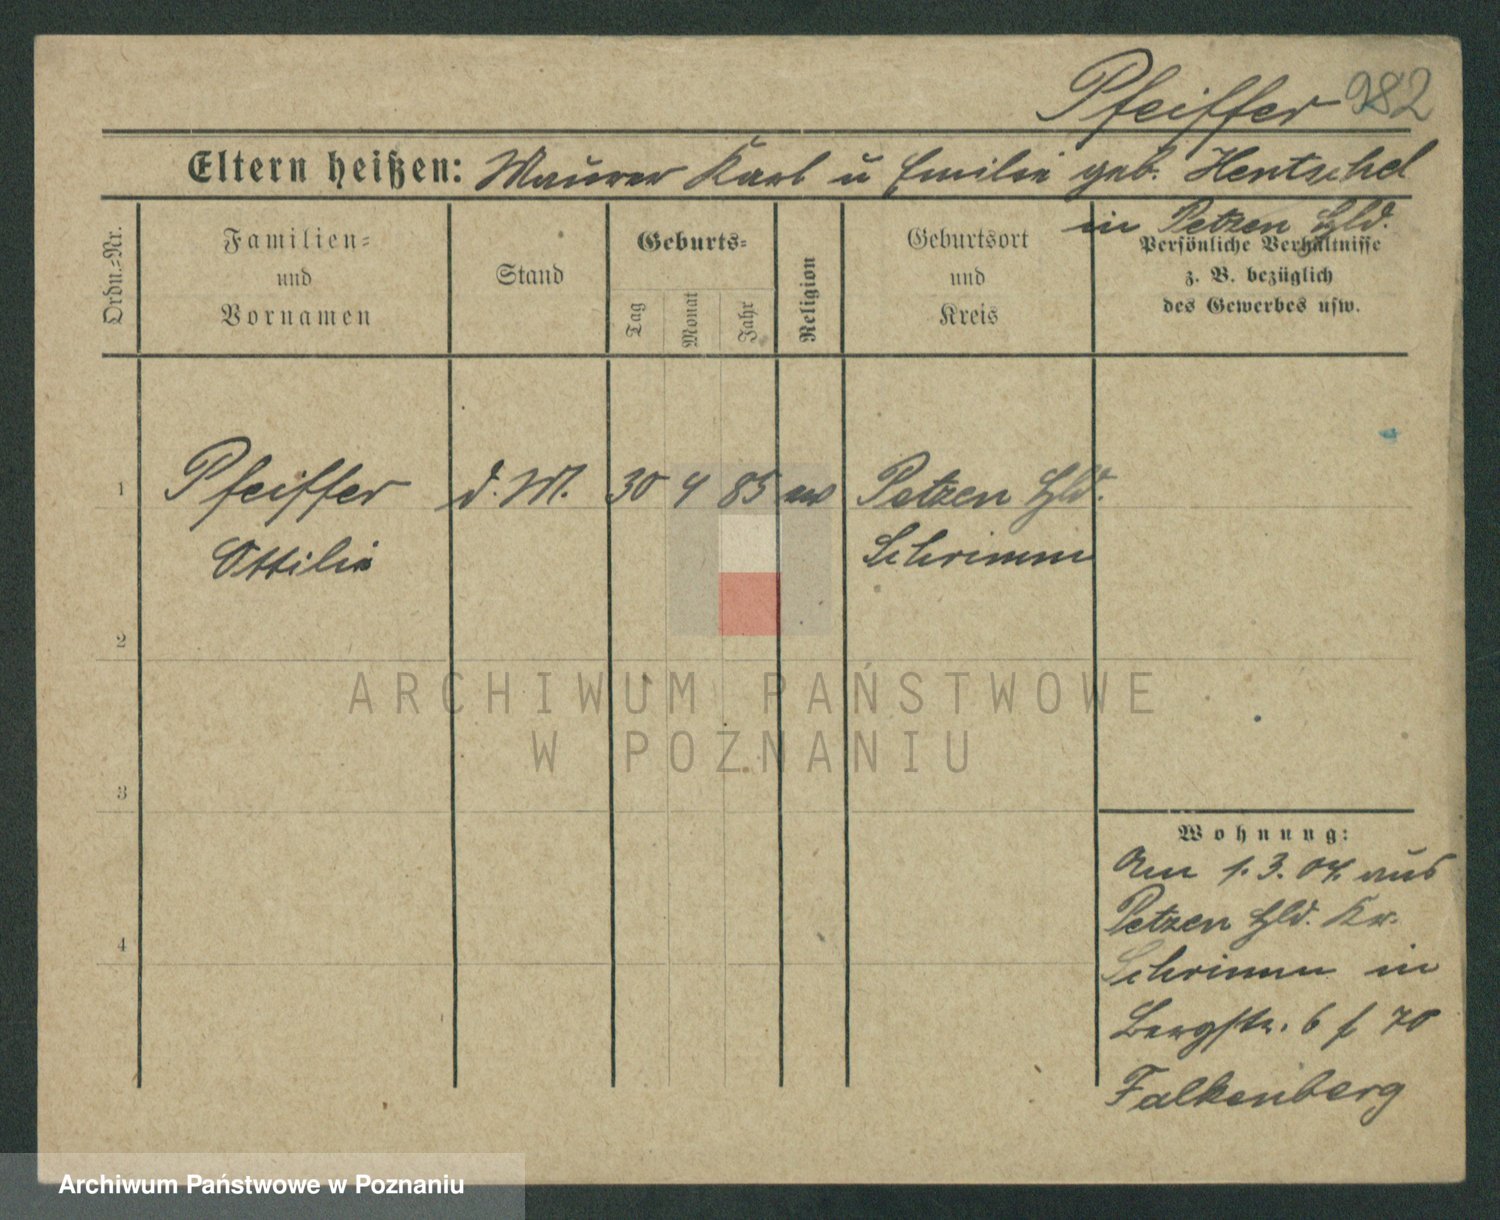 Pfeiffer 982
Eltern heißen: Maurer Karl u Emilie geb. Hentschel
in Petzen Hld.
Ordn.-Nr.
Familien-
und
Vornamen
Stand
Geburts-
Tag
Monat
Jahr
Religion
Geburtsort
und
Kreis
Persönliche Verhältnisse
z. B. bezüglich
des Gewerbes usw.
1 Pfeiffer d. M. 30 4 85 ev Petzen Hld.
Ottilie Schrimm
2
3
4
Wohnung:
Am 1.3.04 aus
Petzen Hld. Kr.
Schrimm in
Bergstr. 6 f 70
Falkenberg
ARCHIWUM PAŃSTWOWE
W POZNANIU
Archiwum Państwowe w Poznaniu